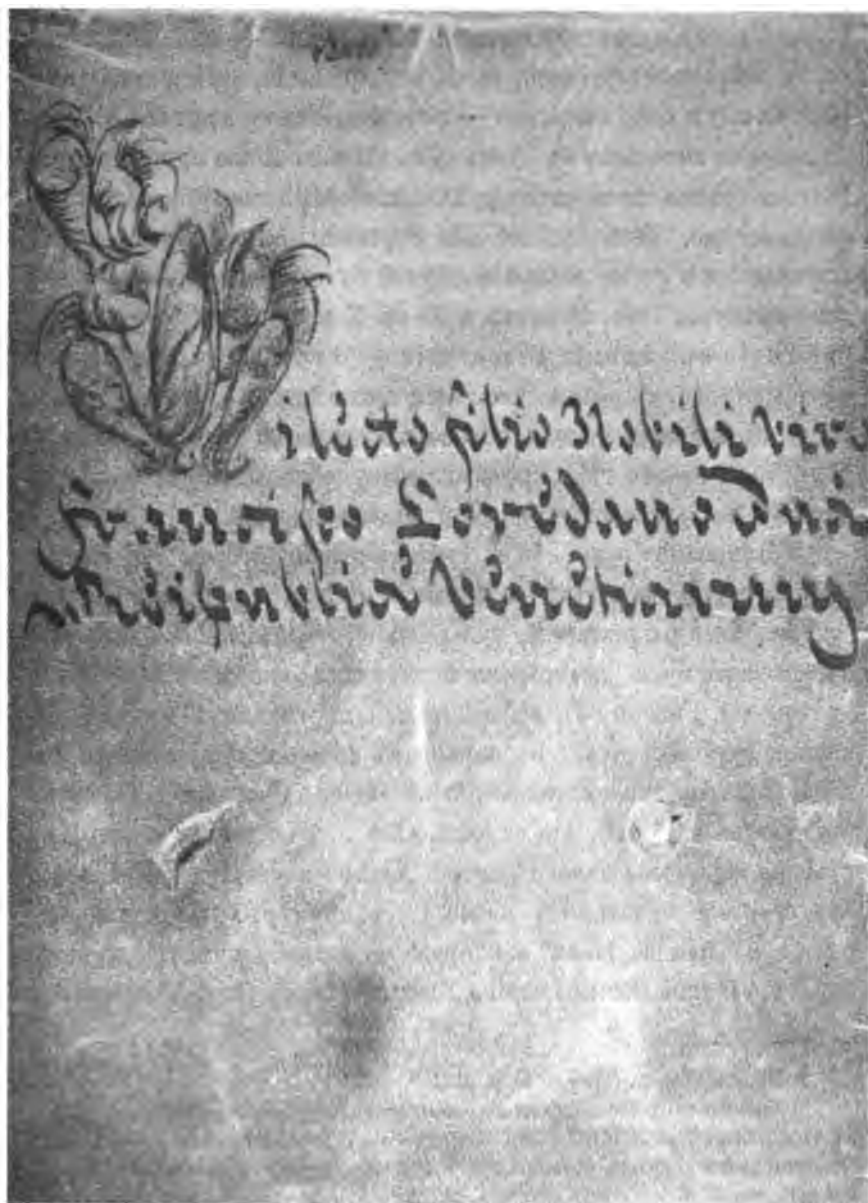 Dilecto filio Nobili Viro
Francisco Lauredano Duci
Reipublicae Venetiarum